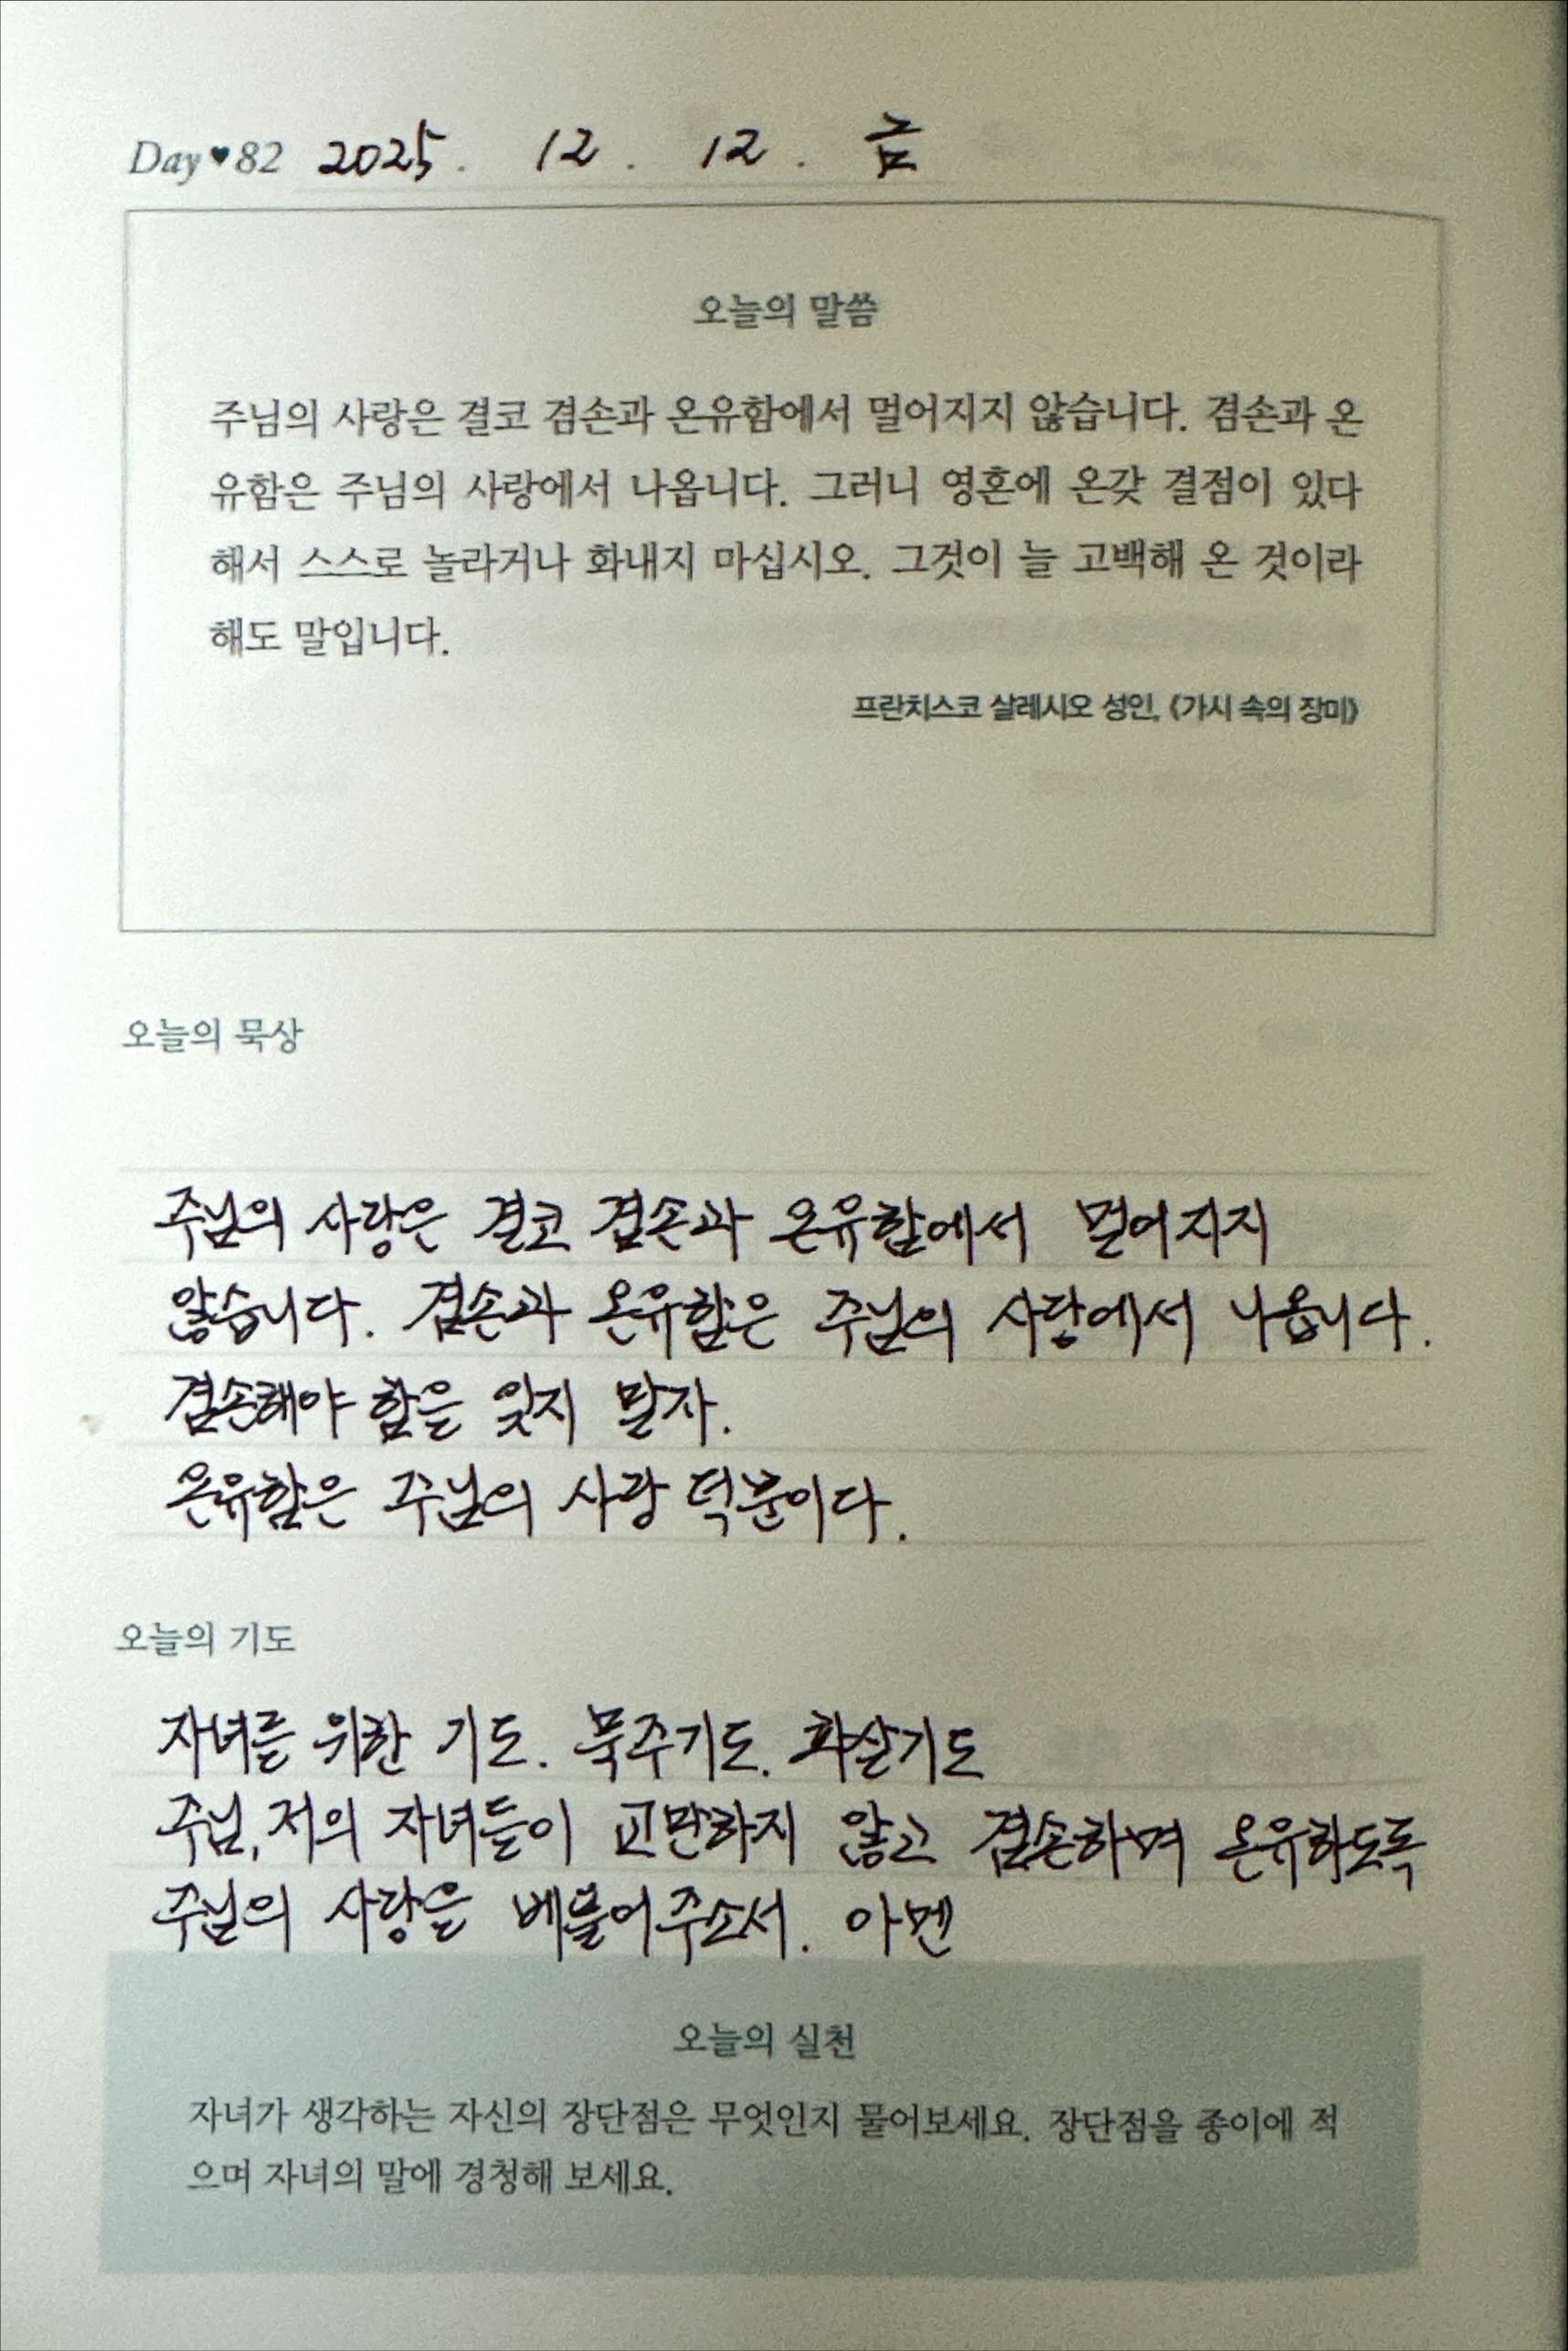 Day♥82 2025. 12. 12. 금
오늘의 말씀
주님의 사랑은 결코 겸손과 온유함에서 멀어지지 않습니다. 겸손과 온
유함은 주님의 사랑에서 나옵니다. 그러니 영혼에 온갖 결점이 있다
해서 스스로 놀라거나 화내지 마십시오. 그것이 늘 고백해 온 것이라
해도 말입니다.
프란치스코 살레시오 성인, 《가시 속의 장미》
오늘의 묵상
주님의 사랑은 결코 겸손과 온유함에서 멀어지지
않습니다. 겸손과 온유함은 주님의 사랑에서 나옵니다.
겸손해야 함을 잊지 말자.
온유함은 주님의 사랑 덕분이다.
오늘의 기도
자녀를 위한 기도. 묵주기도. 화살기도
주님, 저의 자녀들이 교만하지 않고 겸손하며 온유하도록
주님의 사랑을 베풀어주소서. 아멘
오늘의 실천
자녀가 생각하는 자신의 장단점은 무엇인지 물어보세요. 장단점을 종이에 적
으며 자녀의 말에 경청해 보세요.